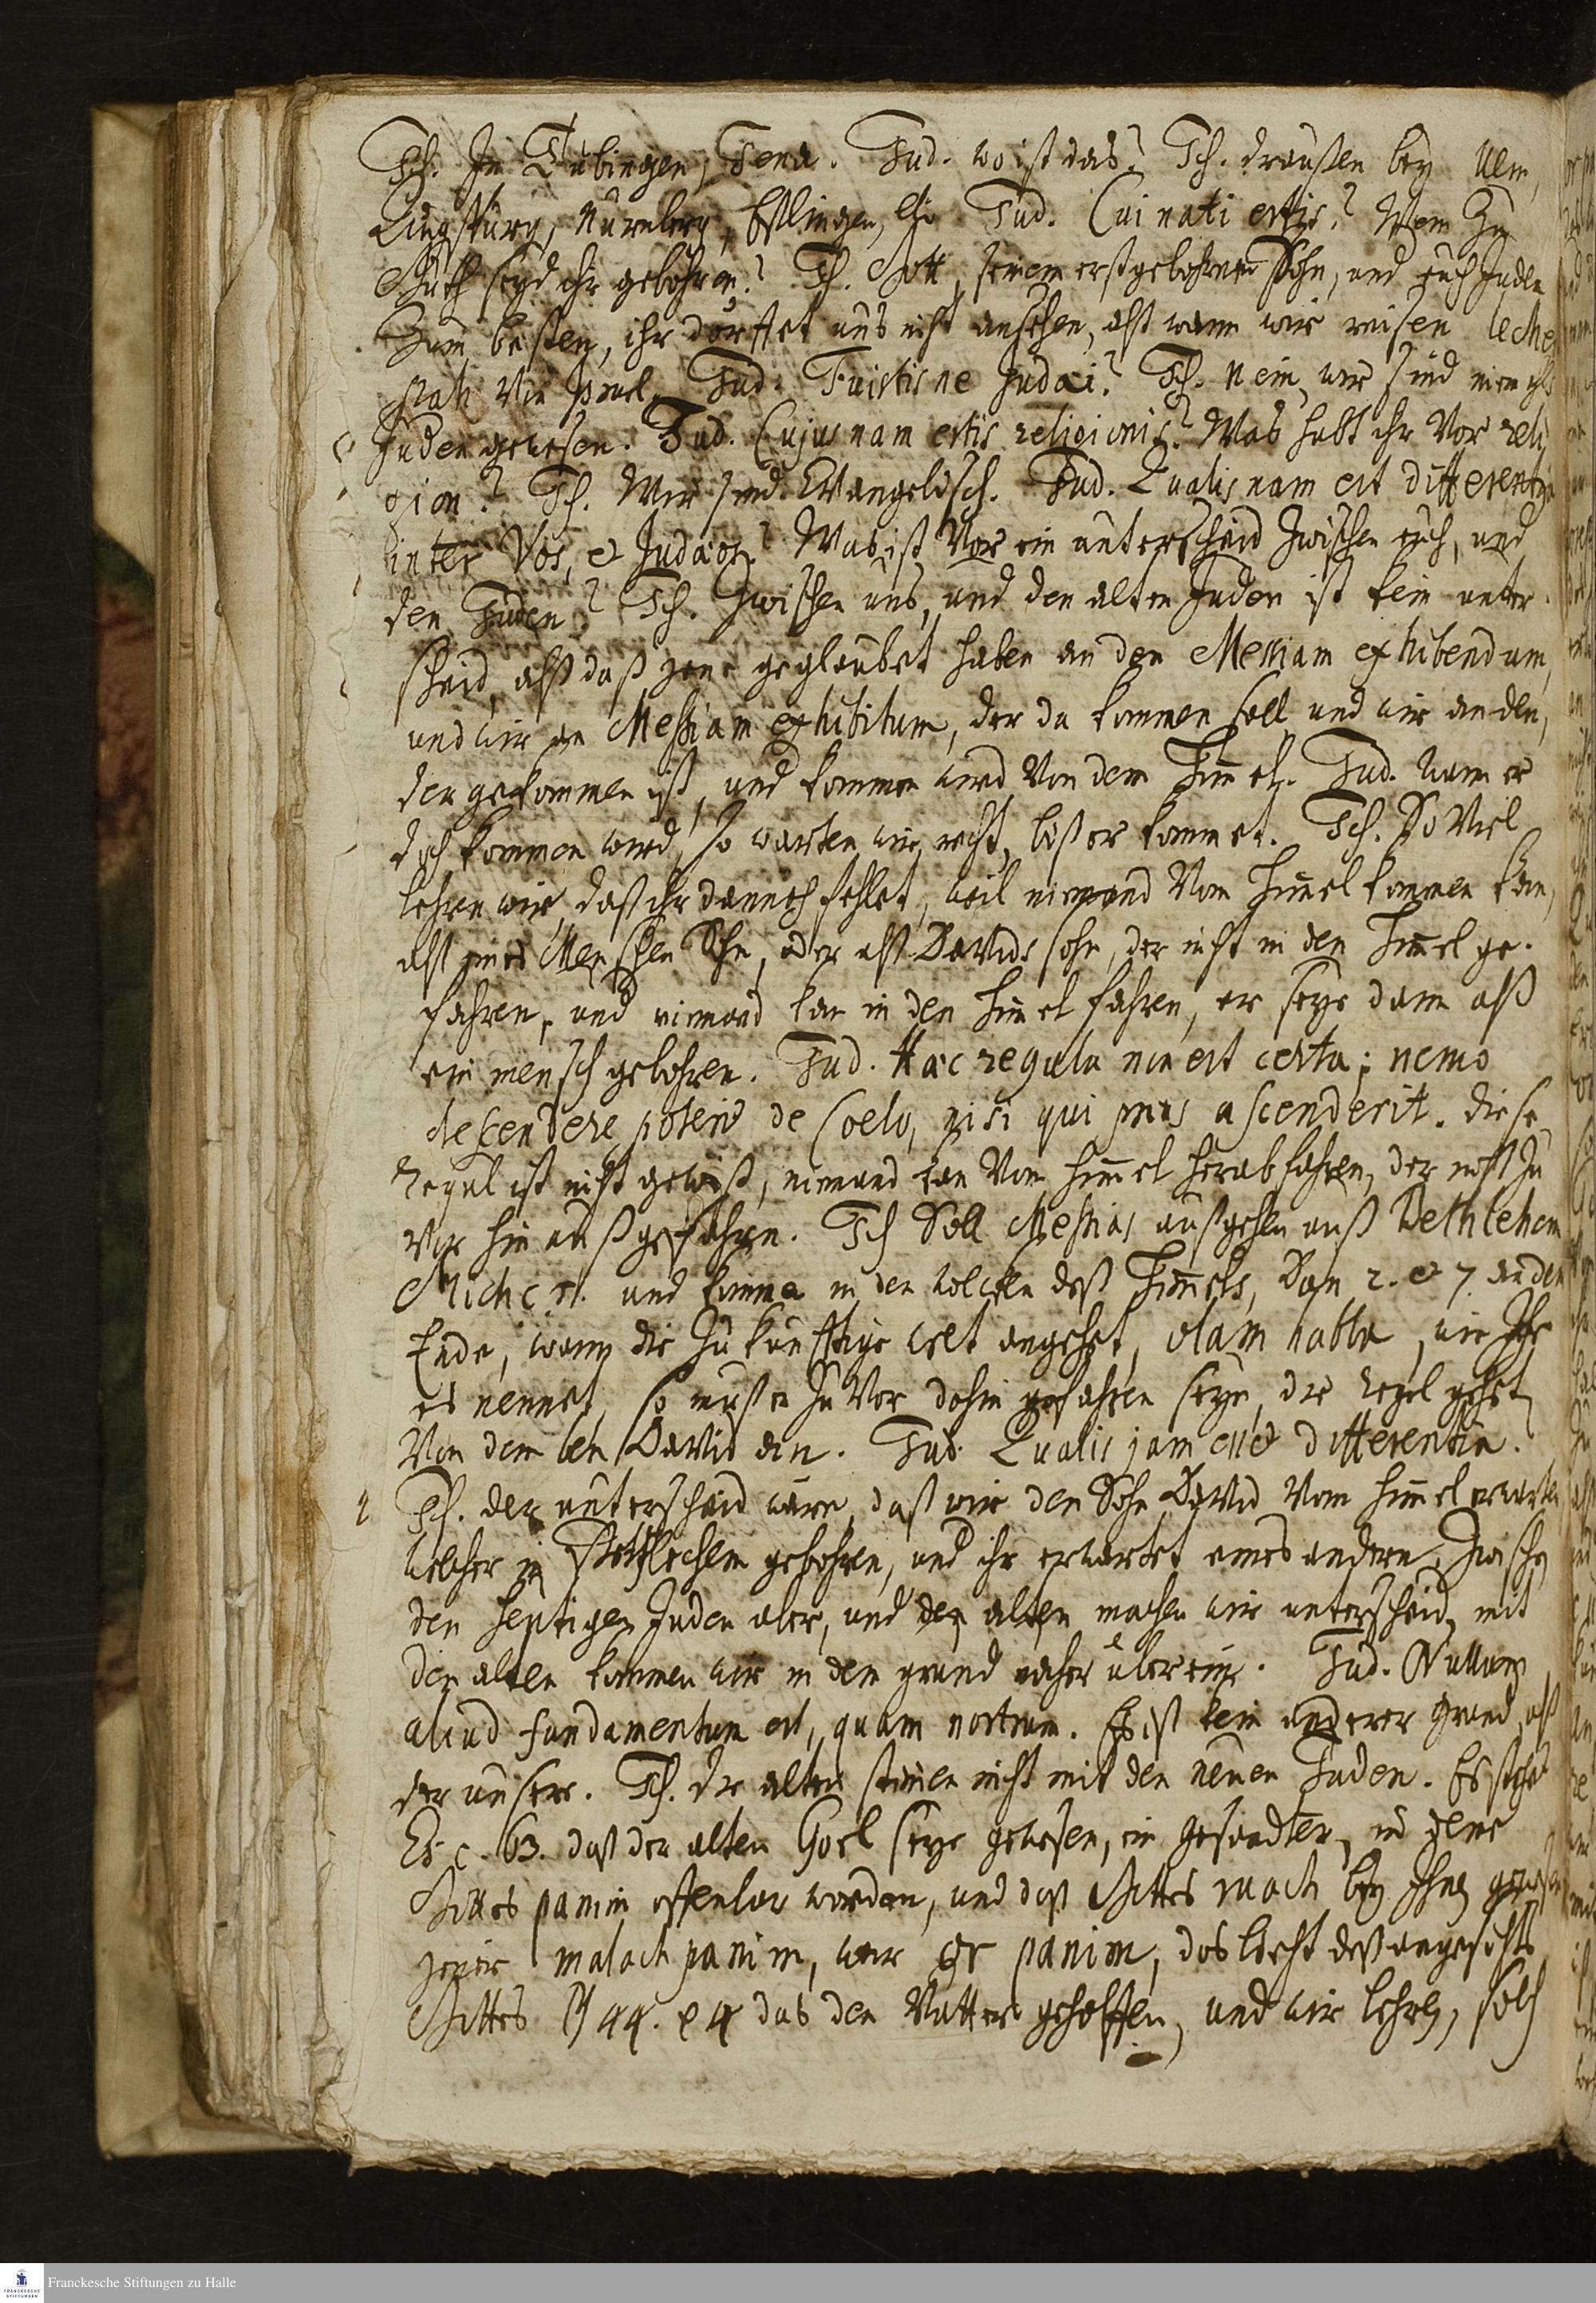 Ich. In Tübingen, Jena. Jud. wo ist das? Ich. draußen bey Ulm,
Augspurg, Nürnberg, Eßlingen, Jud. Cui nati estis? Wem zu
seyd ihr gebohren? Ich. Gott, seinem erstgebohrnen Sohn, und euch Juden
zum besten, ihr dörffet uns nicht ansehen, alß wann wir reisen
Jud. Fuistisne Judæi? Ich. Nein, wir sind niemahls
Juden gewesen. Jud. Cujusnam estis religionis? Was habt ihr vor reli
gion? Ich. Wir sind Evangelisch. Jud. Qualisnam est differentia
inter Vos, et Judæos? Was ist vor ein unterscheid zwischen euch, und
den Juden? Ich. Zwischen uns, und den alten Juden ist kein unter-
scheid, alß daß jene geglaubet haben an den Messiam exhibendum,
und wir an Messiam exhibitum, der da kommen soll, und wir an den,
der gekommen ist, und kommen wird von dem Himel. Jud. wann er
doch kommen wird, so warten wir recht, biß er kommet. Ich. So viel
lehren wir, daß ihr dannoch fehlet, weil niemand vom Himel kommen kan,
alß eines Menschen Sohn, oder alß Davids sohn, der nicht in den Himel ge-
fahren, und niemand kan in den Himel fahren, er seye dann alß
ein mensch gebohren. Jud. Hæc regula non est certa; nemo
descendere potest de Coelo, nisi qui prius ascenderit. diese
Regul ist nicht gewiß, niemand kan vom Himel herab fahren, der nicht zu
vor hinauß gefahren. Ich Soll Messias außgehen auß Bethlehem
Mich. c. 5. und kommen in den wolcken deß Himels, Dan. 2. et 7. an dem
Ende, wann die zukünfftige welt angehet, olam habba, wie Ihr
es nennet, so muß er zuvor dahin gefahren seyn, die regel gehet
von dem ben David an. Jud. Qualis jam esset differentia.
Ich. der unterscheid wäre, daß wir den Sohn David vom Himel erwarten
welcher in Bethlehem gebohren, und ihr erwartet eines andern, zwischen
den heutigen Juden aber, und den alten machen wir unterscheid, mit
den alten kommen wir in dem grund näher überein. Jud. Nullum
aliud fundamentum est, quam nostrum. Es ist kein anderer grund, alß
der unsere. Ich. die alten stimen nicht mit den neuen Juden. Es stehet
Es. c. 63. daß der alten Goel seye gewesen, ein gesandter, in dene
Gottes panim offenbar worden, und daß Gottes ruach bey Ihnen gewesen
jener malach panim, war or panim, das liecht deß angesichts
Gottes ψ 44. v. 4 das den Vättern geholffen, und wir lehren, solch
Franckesche Stiftungen zu Halle